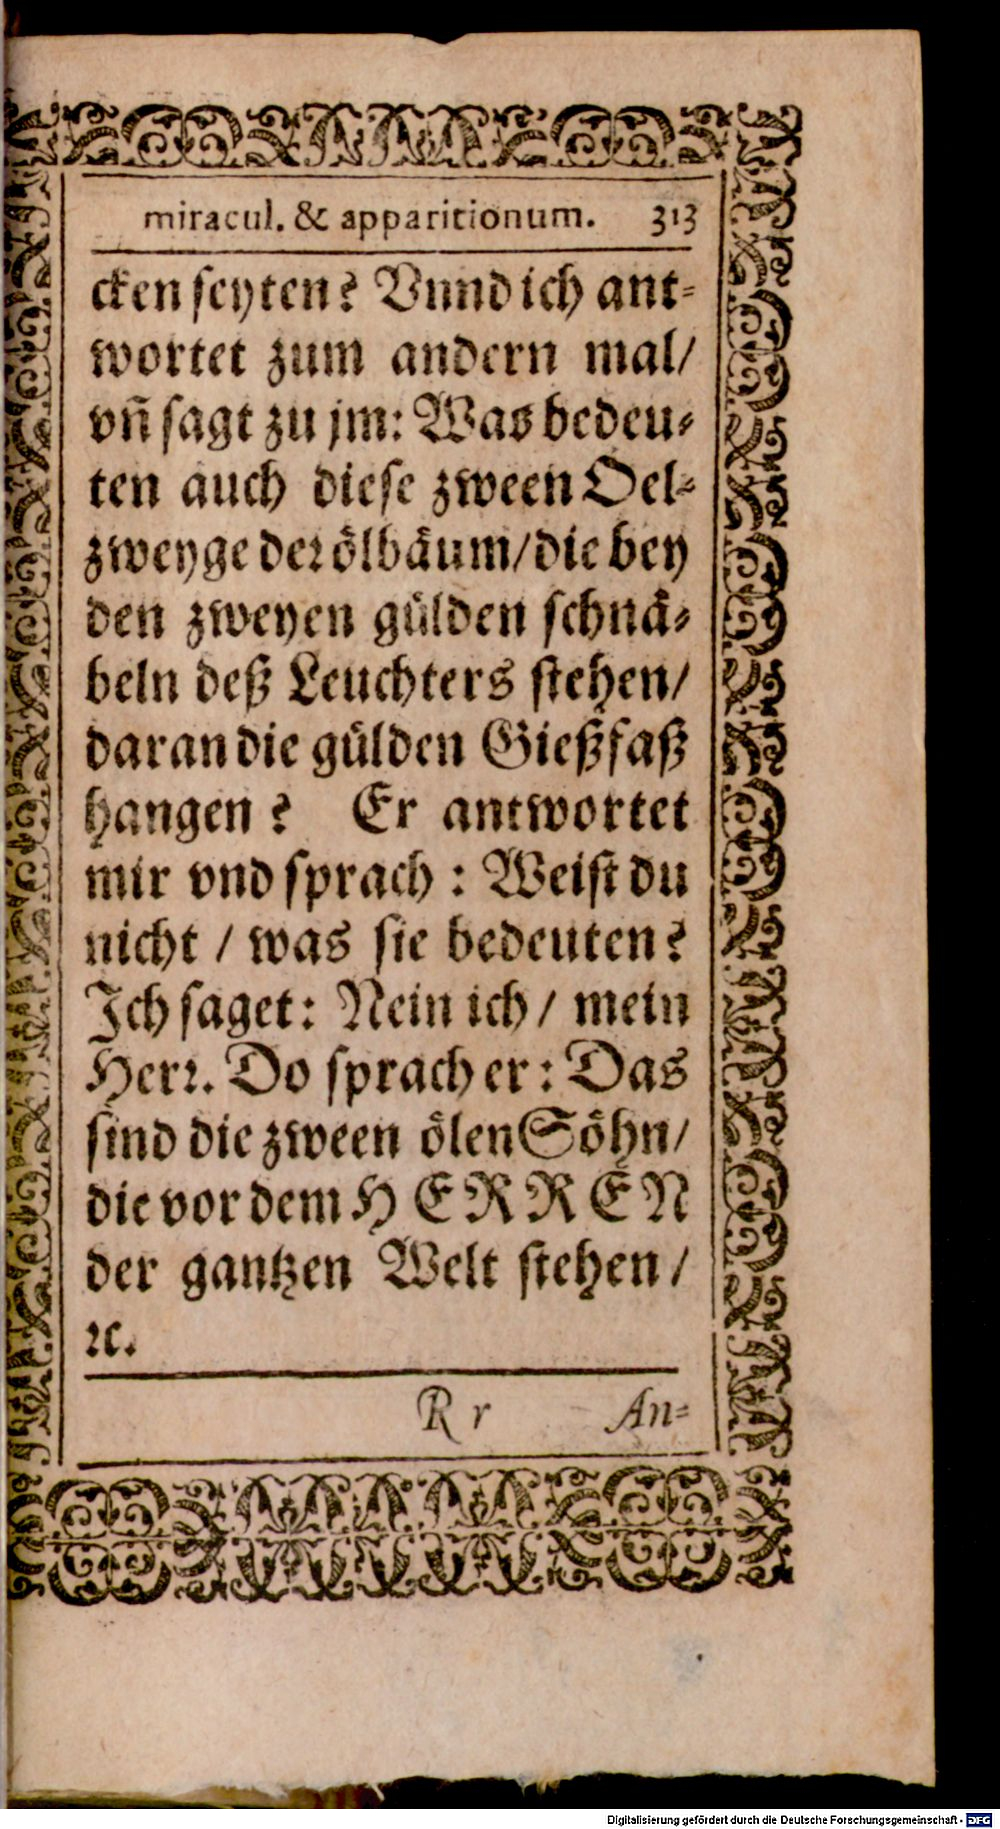 miracul. & apparitionum. 313
cken seyten? Vnnd ich ant-
wortet zum andern mal/
vñ sagt zu jm: Was bedeu-
ten auch diese zween Oel-
zweyge der ölbäum/die bey
den zweyen gülden schnä-
beln deß Leuchters stehen/
daran die gülden Gießfaß
hangen? Er antwortet
mir vnd sprach: Weist du
nicht / was sie bedeuten?
Ich saget: Nein ich/ mein
Herr. Do sprach er: Das
sind die zween ölen Söhn/
die vor dem HERREN
der gantzen Welt stehen/
ꝛc.
Rr An-
Digitalisierung gefördert durch die Deutsche Forschungsgemeinschaft - DFG